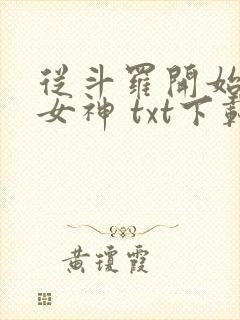 從斗羅開始
女神 txt下載
黃瓊霞